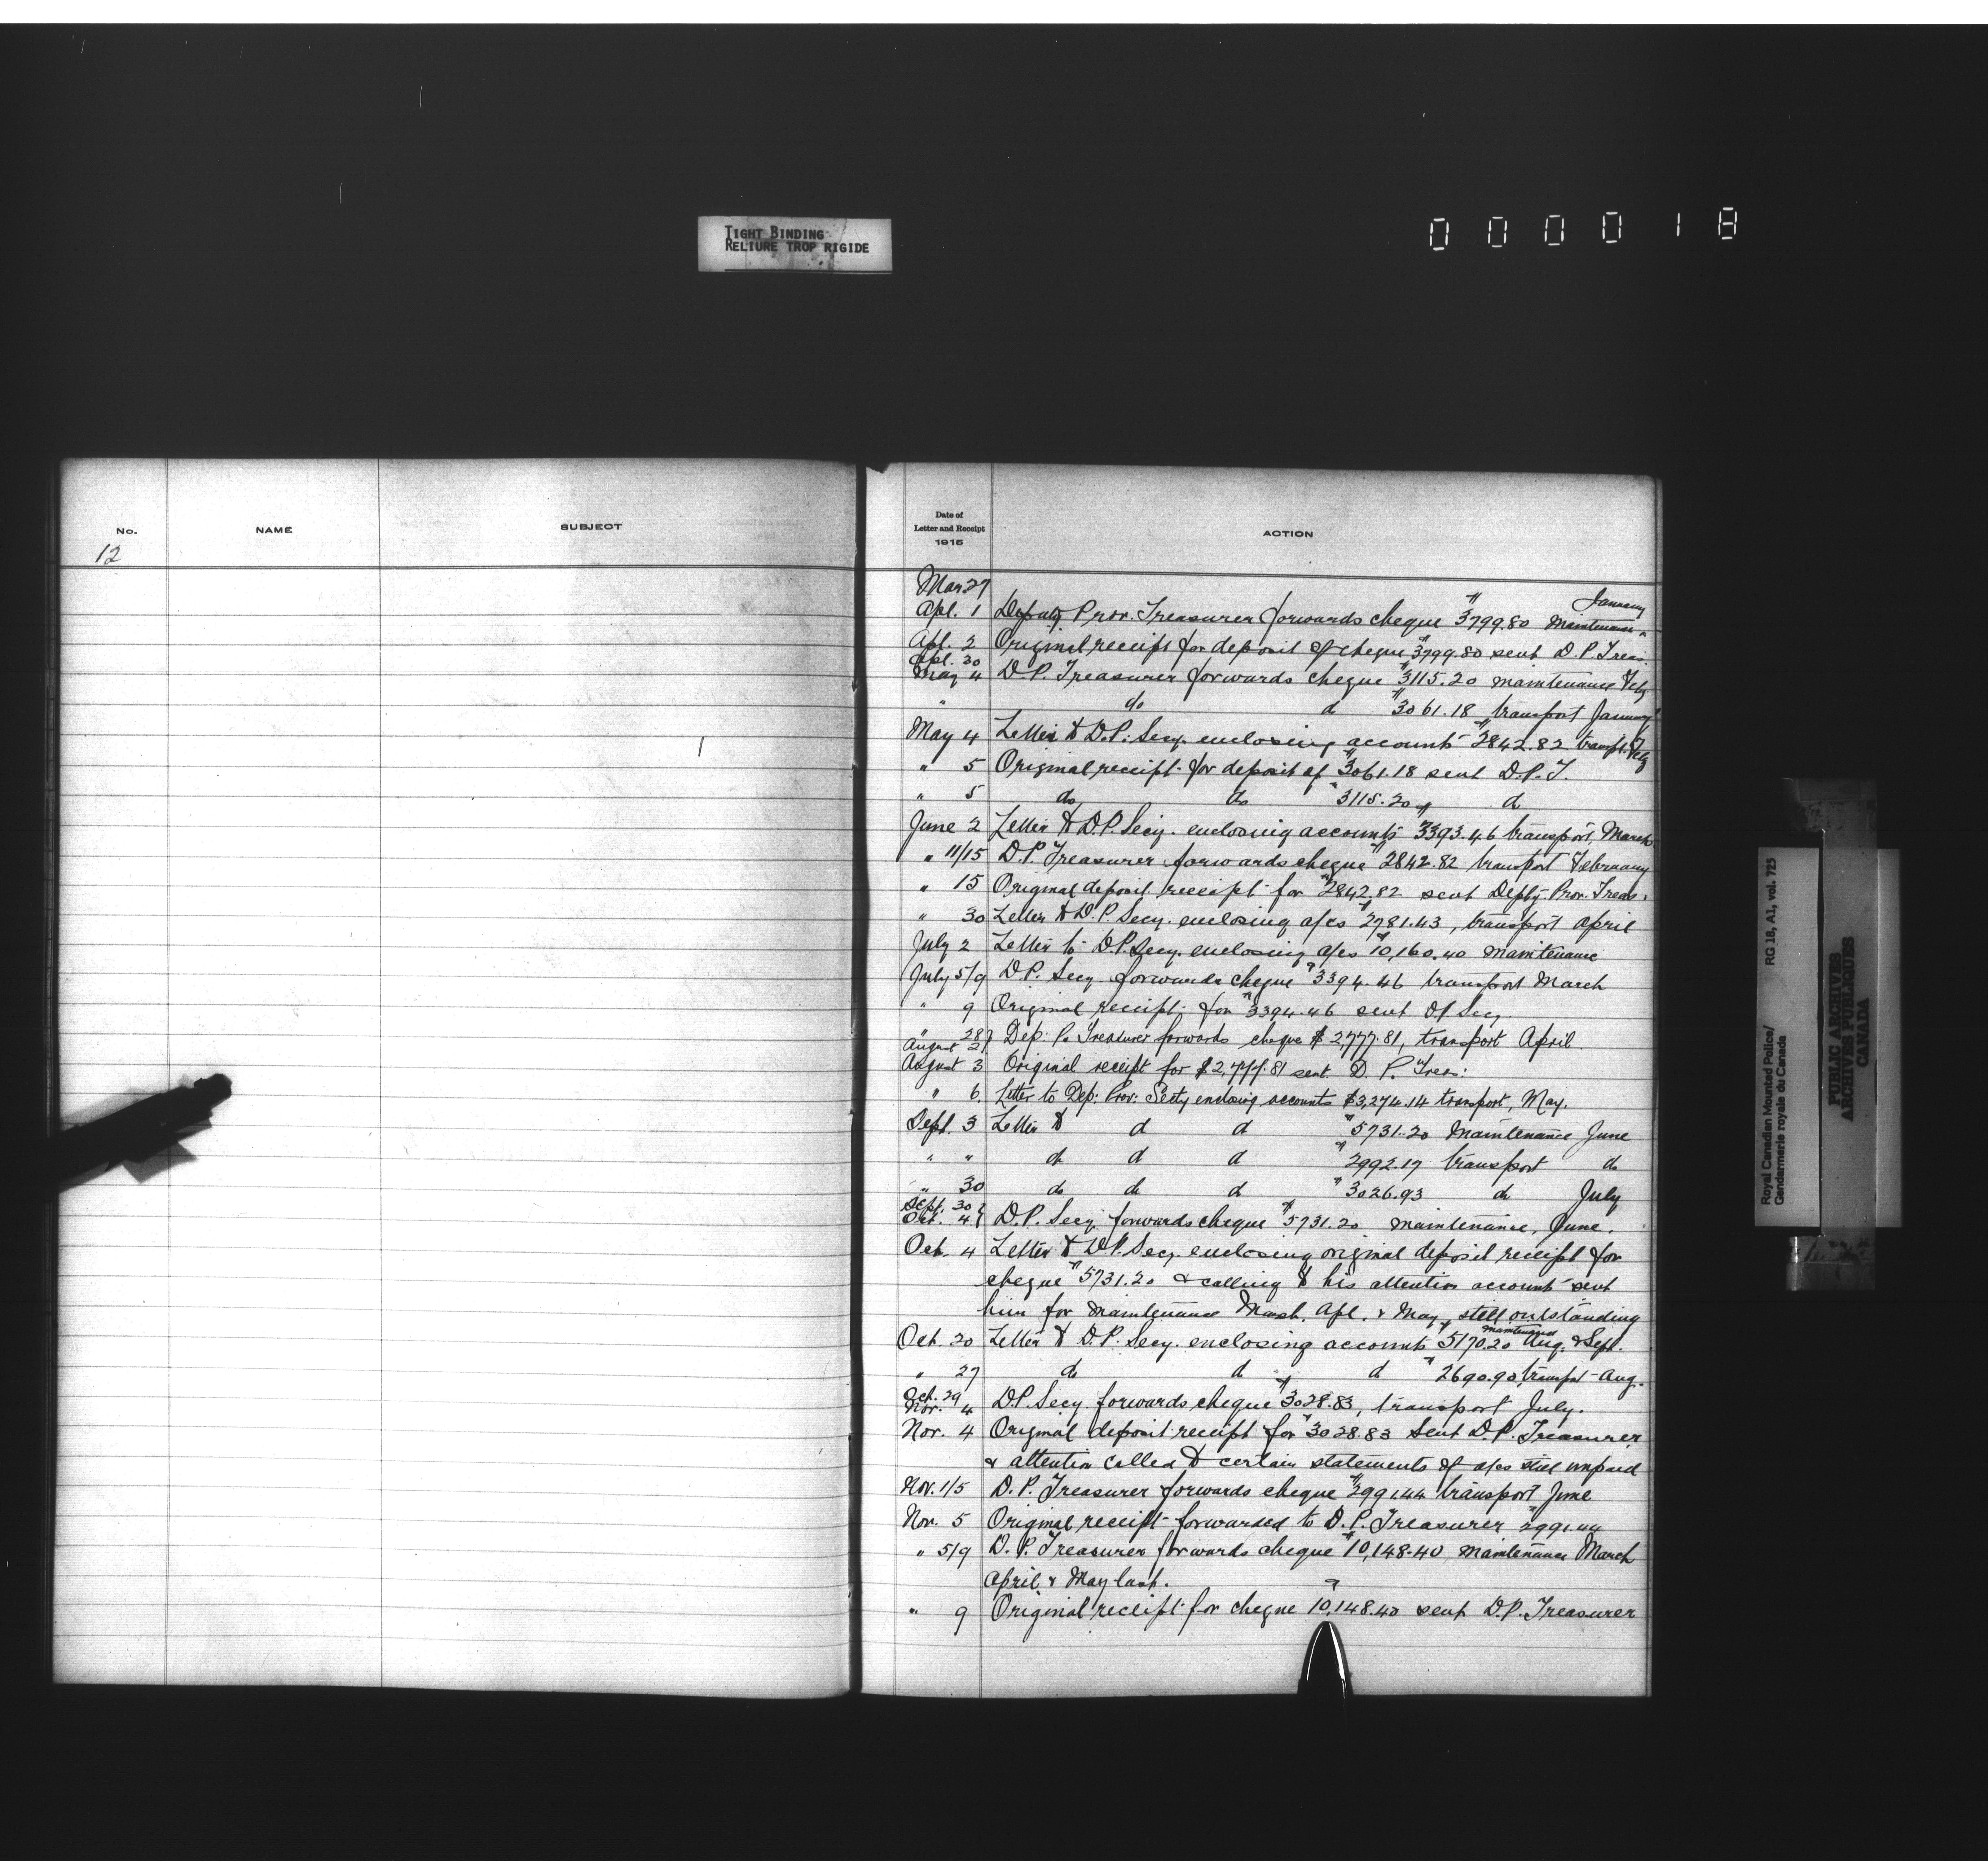 TIGHT BINDING
RELIURE TROP RIGIDE
000018
No. NAME SUBJECT
12
Date of
Letter and Receipt
1915
ACTION
Mar. 27
Apl. 1 Deputy Prov. Treasurer forwards cheque $3799.80 Maintenance January
Apl. 2 Original receipt for deposit of cheque $3799.80 sent D.P. Treas.
Apl. 30
May 4 D.P. Treasurer forwards cheque $3115.20 maintenance Feby
" do d $3061.18 transport January
May 4 Letter to D.P. Secy. enclosing accounts $2842.82 transpt. Feby
" 5 Original receipt for deposit of $3061.18 sent D.P.T.
" 5 do do $3115.20 d
June 2 Letter to D.P. Secy. enclosing accounts $3393.46 transport, March
" 11/15 D.P. Treasurer forwards cheque $2842.82 transport February
" 15 Original deposit receipt for $2842.82 sent Depty. Prov. Treas.
" 30 Letter to D.P. Secy. enclosing a/cs $2781.43, transport April
July 2 Letter to D.P. Secy. enclosing a/cs $10,160.40 maintenance
July 5/9 D.P. Secy. forwards cheque $3394.46 transport March
" 9 Original receipt for $3394.46 sent Secy.
" 28
August 2 } Dep: P. Treasurer forwards cheque $2,777.81, transport April.
August 3 Original receipt for $2,777.81 sent D. P. Treas:
" 6. Letter to Dep: Prov: Secty enclosing accounts $3,274.14 transport, May.
Sept. 3 Letter to d d $5731.20 Maintenance June
" " do d d $2992.17 transport do
" 30 do do d $3026.93 do July
Sept. 30
Oct. 4 } D.P. Secy. forwards cheque $5731.20 maintenance, June.
Oct. 4 Letter to D.P. Secy. enclosing original deposit receipt for
cheque $5731.20 & calling to his attention account sent
him for maintenance March, Apl. & May, still outstanding
Oct. 20 Letter to D.P. Secy. enclosing accounts $5170.20 maintenance Aug. & Sept.
" 27 do d d $2690.90, transpt Aug.
Oct. 29
Nov. 4 D.P. Secy. forwards cheque $3028.83, transport July.
Nov. 4 Original deposit receipt for $3028.83 sent D.P. Treasurer
& attention called to certain statements of a/cs still unpaid
Nov. 1/5 D.P. Treasurer forwards cheque $2991.44 transport June
Nov. 5 Original receipt forwarded to D.P. Treasurer $2991.44
" 5/9 D.P. Treasurer forwards cheque $10,148.40 maintenance March
April & May last.
" 9 Original receipt for cheque $10,148.40 sent D.P. Treasurer
Royal Canadian Mounted Police/
Gendarmerie royale du Canada
RG 18, A1, vol. 725
PUBLIC ARCHIVES
ARCHIVES PUBLIQUES
CANADA